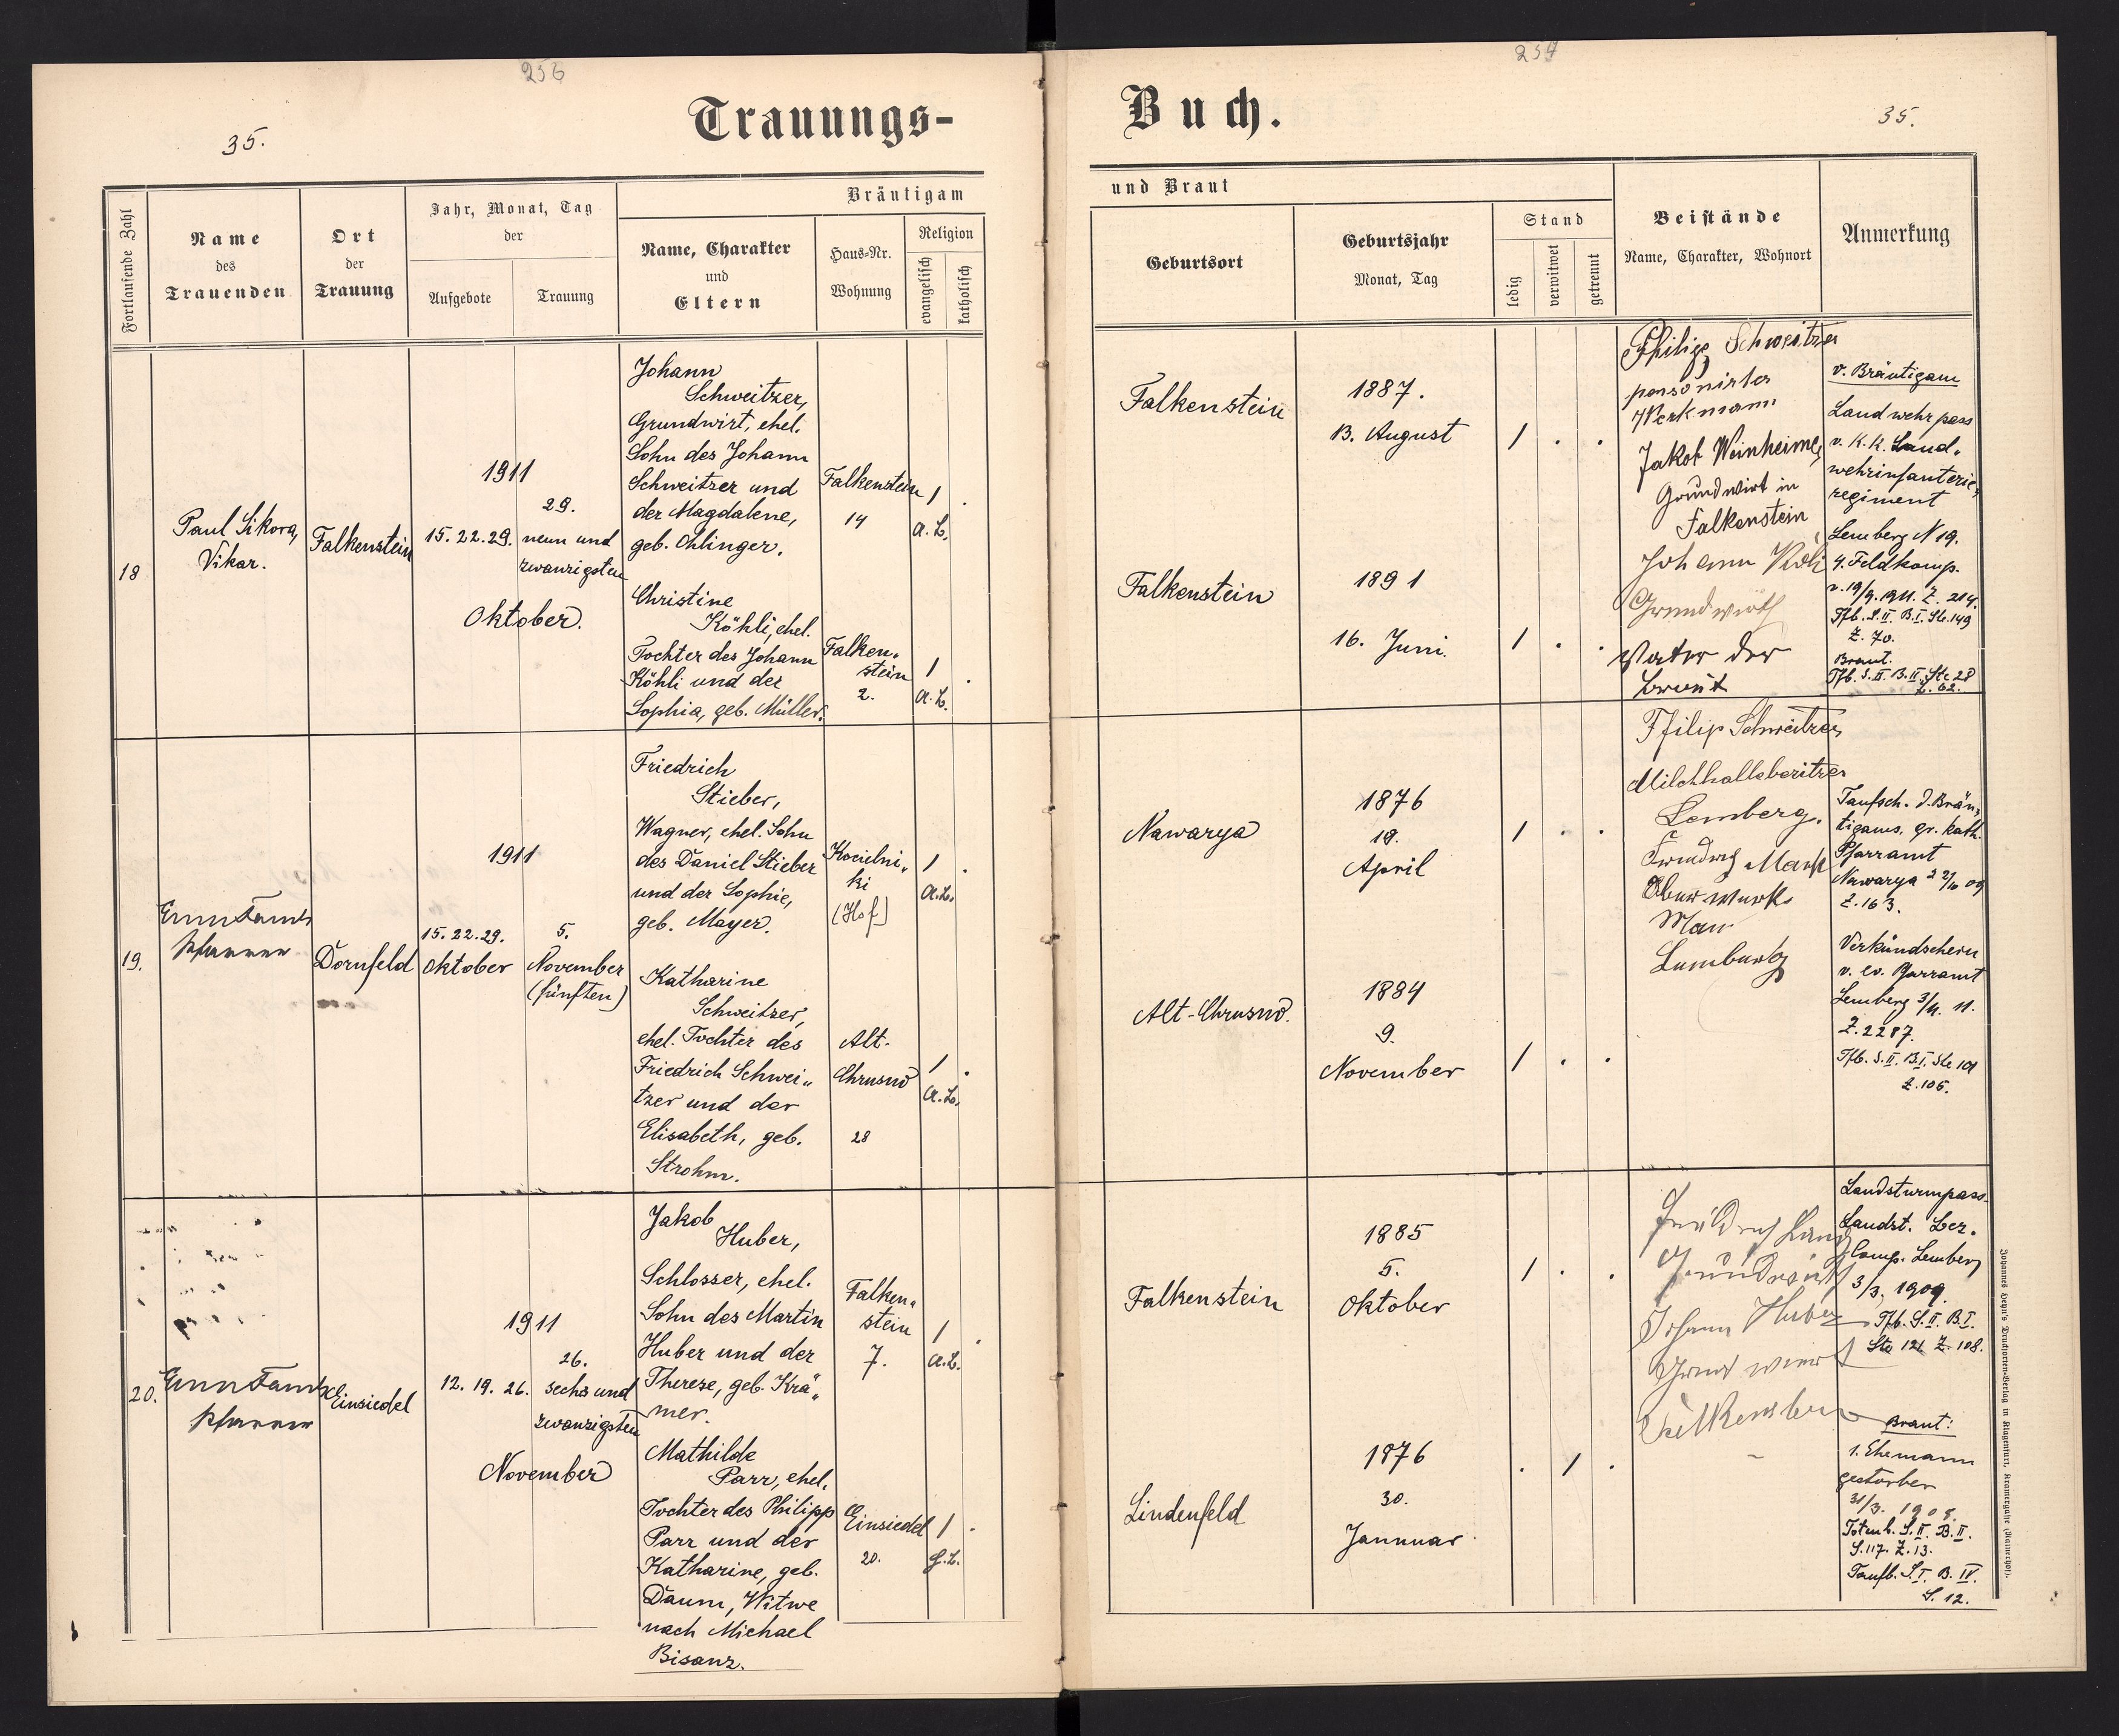 256
Trauungs-
35.
Fortlaufende Zahl
Name
des
Trauenden
Ort
der
Trauung
Jahr, Monat, Tag
der
Aufgebote
Trauung
Bräutigam
Name, Charakter
und
Eltern
Haus-Nr.
Wohnung
Religion
evangelisch
katholisch
18
Paul Sikora,
Vikar.
Falkenstein
1911
29.
15. 22. 29.
neun und
zwanzigsten
Oktober.
Johann
Schweitzer,
Grundwirt, ehel.
Sohn des Johann
Schweitzer und
der Magdalene,
geb. Ohlinger.
Falkenstein
14
1 .
A. L.
Christine
Köhli, ehel.
Tochter des Johann
Köhli und der
Sophia, geb. Müller.
Falken„
stein
2.
1 .
A. L.
19.
Pfarrer
Dornfeld
1911
15. 22. 29.
Oktober
5.
November
(fünften)
Friedrich
Stieber,
Wagner, ehel. Sohn
des Daniel Stieber
und der Sophie,
geb. Mayer.
Kocielni„
ki
(Hof)
1 .
A. L.
Katharine
Schweitzer,
ehel. Tochter des
Friedrich Schwei„
tzer und der
Elisabeth, geb.
Strohm.
Alt-
Chrusno
28
1 .
A. L.
20.
Pfarrer
Einsiedel
1911
26.
12. 19. 26.
sechs und
zwanzigsten
November
Jakob
Huber,
Schlosser, ehel.
Sohn des Martin
Huber und der
Therese, geb. Krä„
mer.
Falken„
stein
7.
1 .
A. L.
Mathilde
Parr, ehel.
Tochter des Philipp
Parr und der
Katharine, geb.
Daum, Witwe
nach Michael
Bisanz.
Einsiedel
20.
1 .
257
Buch.
35.
und Braut
Geburtsort
Geburtsjahr
Monat, Tag
Stand
ledig
verwitwet
getrennt
Beistände
Name, Charakter, Wohnort
Anmerkung
Falkenstein
1887.
13. August
1 . .
Falkenstein
1891
16. Juni.
1 . .
Philipp Schweitzer
Werkmann
Jakob Weinheimer
Grundwirt in
Falkenstein
Johann
Grundwirth
Vater der
Braut
v. Bräutigam
Landwehrpass
v. K. K. Land„
wehrinfanterie„
regiment
Lemberg N 19.
4. Feldkomp.
v. 19/9. 1911. Z. 214.
Tfb. S. II. B. I. Ste. 149
Z. 70.
Braut.
Tfb. S. II. B. II. Ste 28
Z. 62.
Nawarya
1876
19.
April
1 . .
Alt-Chrusno.
1884
9.
November
1 . .
Philip Schweitzer
Milchhallebesitzer
Lemberg.
Ober werk
Man
Lemberg
Taufsch. d. Bräu„
tigams, gr. kath.
Pfarramt
Nawarya
Z. 163.
Verkündschein
v. ev. Pfarramt
Lemberg 3/11. 11.
Z. 2287.
Tfb. S. II. B. I. Ste 101
Z. 105.
Falkenstein
1885
5.
Oktober
1 . .
Lindenfeld
1876
30.
Jannuar
. 1 .
Johann Huber
Landsturmpass
Landst. Bez.
Comp. Lemberg
3/3. 1909.
Tfb. S. II. B. I.
Ste 121 Z. 108.
Braut:
1. Ehemann
gestorben
31/3. 1908.
Totenb. S. II. B. II.
S. 117. Z. 13.
Taufb. S. I. B. IV.
S. 12.